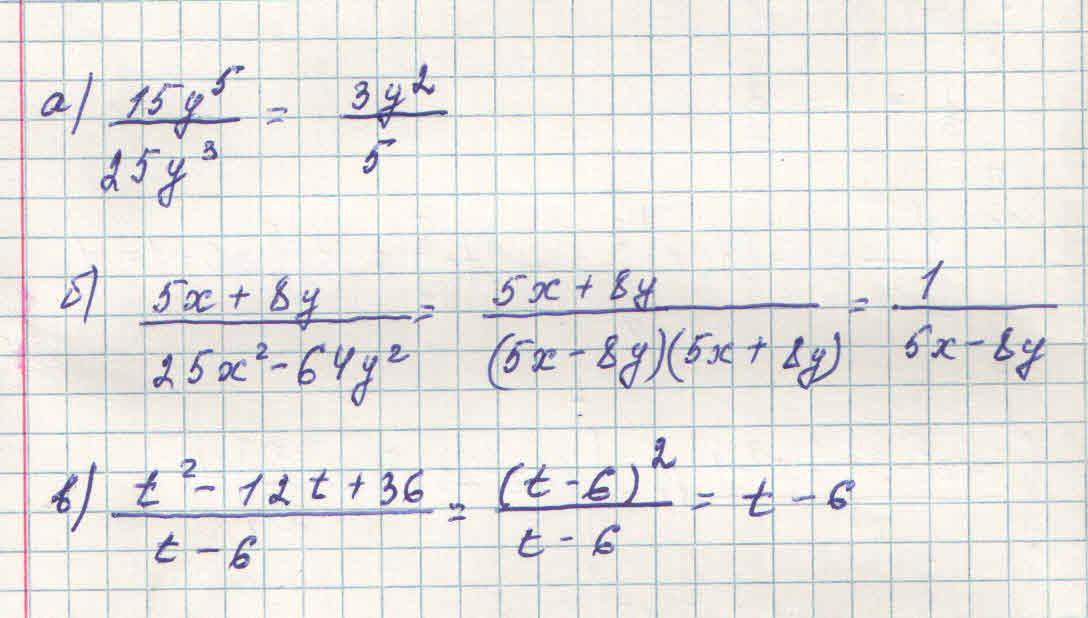 а) 15y⁵/25y³ = 3y²/5
б) 5x + 8y/25x² - 64y² = 5x + 8y/(5x - 8y)(5x + 8y) = 1/5x - 8y
в) t² - 12t + 36/t - 6 = (t - 6)²/t - 6 = t - 6